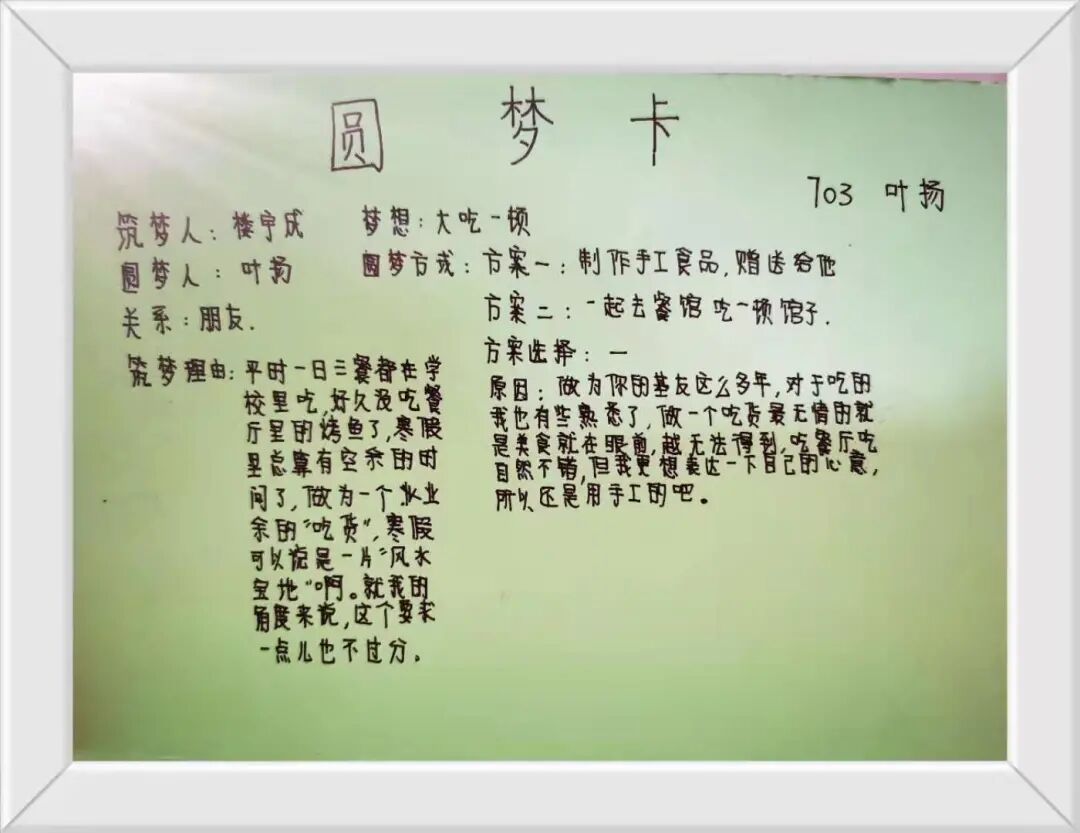 圆梦卡
703 叶扬
筑梦人：楼宇成
圆梦人：叶扬
关系：朋友.
筑梦理由：平时一日三餐都在学
校里吃，好久没吃餐
厅里的烤鱼了，寒假
里总算有空余的时
间了，做为一个业
余的“吃货”，寒假
可以说是一片“风水
宝地”啊。就我的
角度来说，这个要求
一点儿也不过分。
梦想：大吃一顿
圆梦方式：方案一：制作手工食品，赠送给他
方案二：一起去餐馆吃一顿馆子.
方案选择：一
原因：做为你的基友这么多年，对于吃的
我也有些熟悉了，做一个吃货最无情的就
是美食就在眼前，越无法得到，吃餐厅吃
自然不错，但我更想表达一下自己的心意，
所以还是用手工的吧。